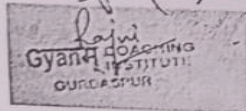 Rajni
Gyanम COACHING
INSTITUTE
GURDASPUR